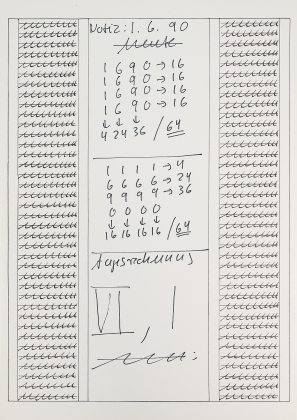 Notiz: 1. 6. 90
1 6 9 0 → 16
1 6 9 0 → 16
1 6 9 0 → 16
1 6 9 0 → 16
↓ ↓ ↓
4 24 36 / 64
1 1 1 1 → 4
6 6 6 6 → 24
9 9 9 9 → 36
0 0 0 0
↓ ↓ ↓ ↓
16 16 16 16 / 64
Tagsrechnung
VI, 1